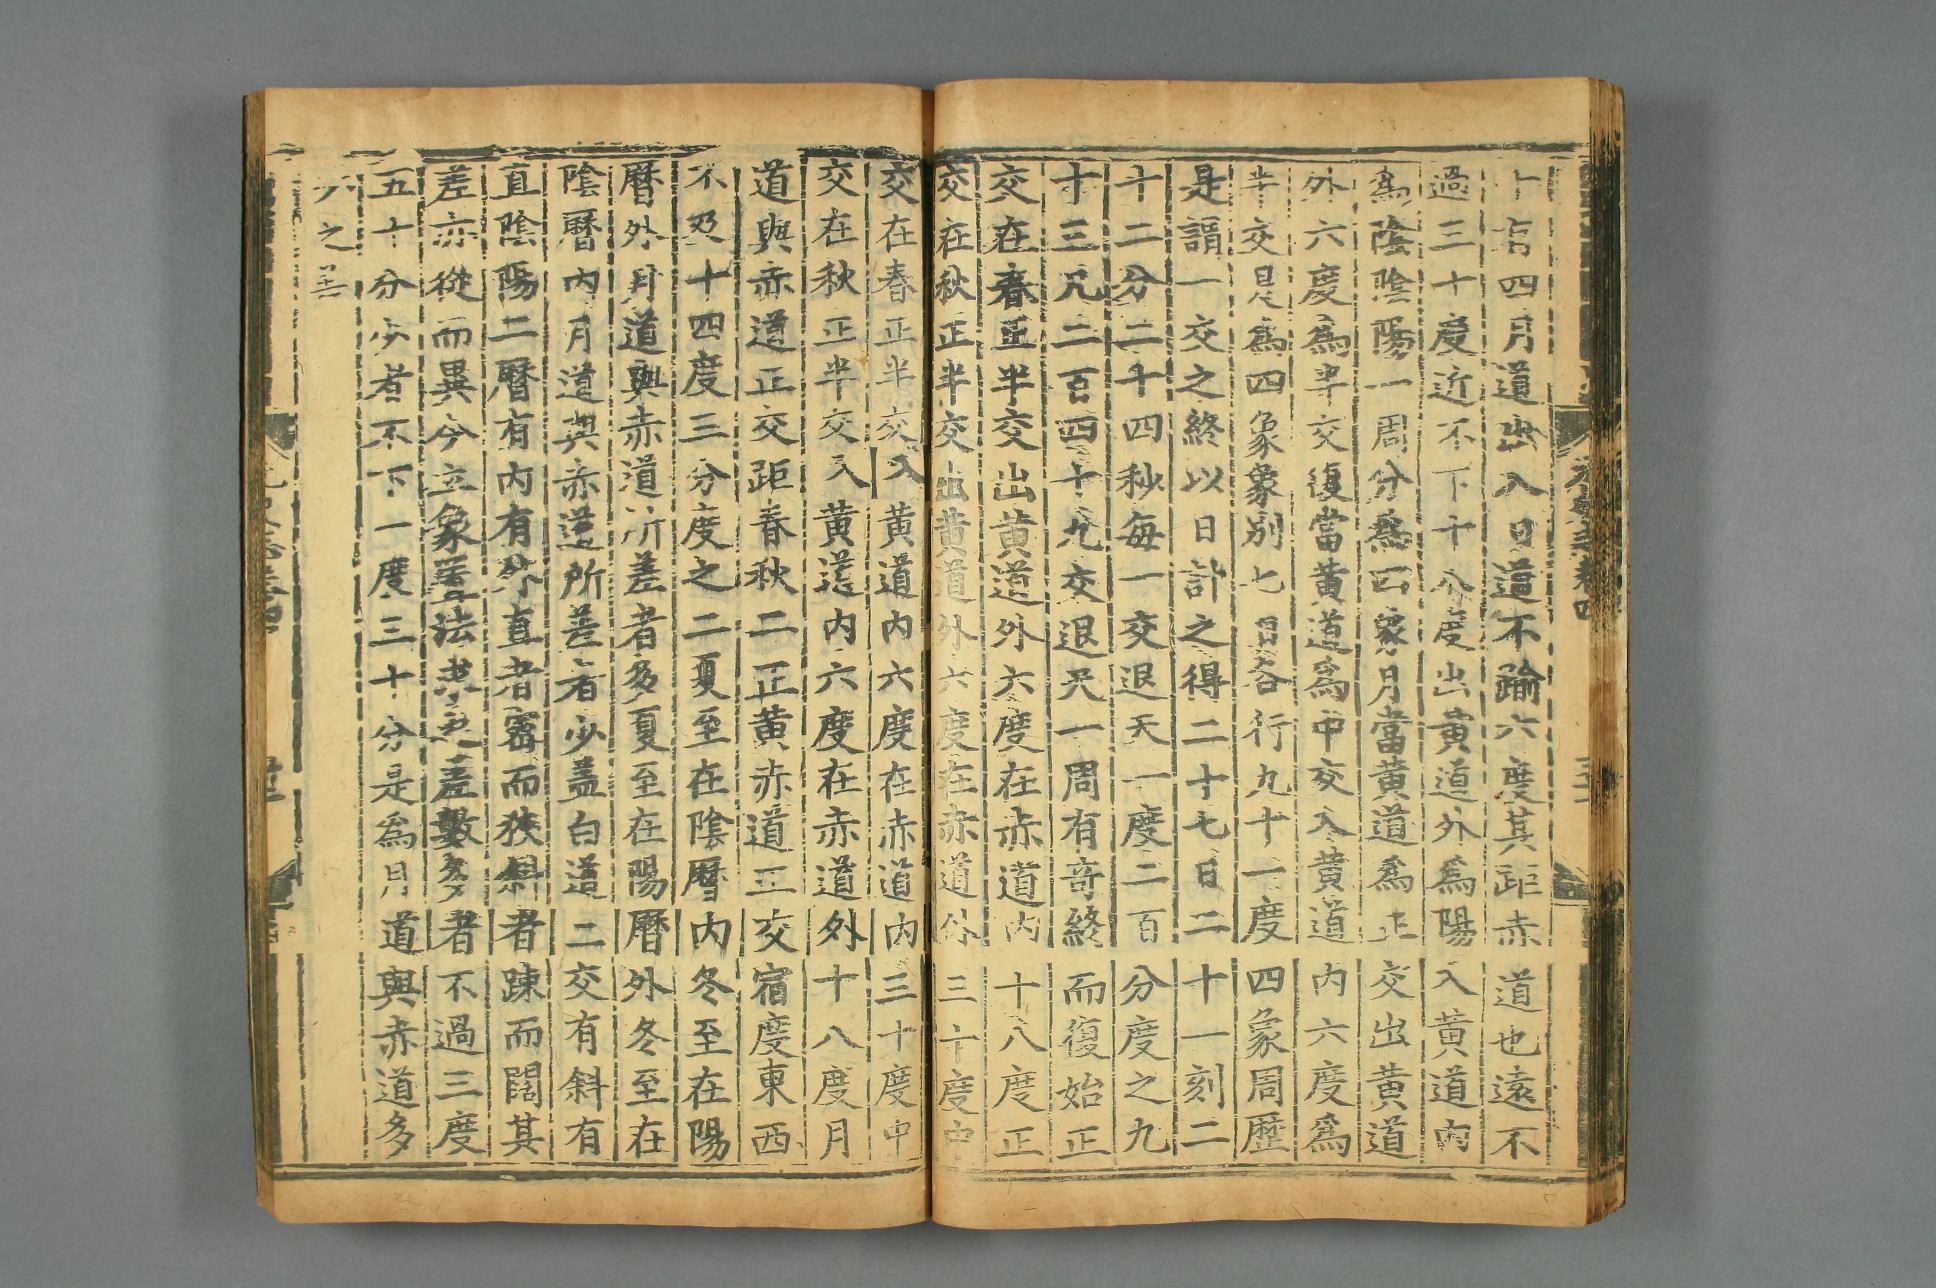 十百四月道出入日道不踰六度其距赤道也遠不
過三十度近不下十八度出黃道外爲陽入黃道內
爲陰陰陽一周分爲四象月當黃道爲正交出黃道
外六度爲半交復當黃道爲中交入黃道內六度爲
半交是爲四象象別七日各行九十一度四象周歷
是謂一交之終以日計之得二十七日二十一刻二
十二分二十四秒每一交退天一度二百分度之九
十三凡二百四十九交退天一周有奇終而復始正
交在春正半交出黃道外六度在赤道內十八度正
交在秋正半交出黃道外六度在赤道外三十度中
交在春正半交入黃道內六度在赤道內三十度中
交在秋正半交入黃道內六度在赤道外十八度月
道與赤道正交距春秋二正黃赤道正交宿度東西
不及十四度三分度之二夏至在陰曆內冬至在陽
曆外月道與赤道所差者多夏至在陽曆外冬至在
陰曆內月道與赤道所差者少盖白道二交有斜有
直陰陽二曆有內有外直者密而狹斜者踈而闊其
差亦從而異今立象置法求之差數多者不過三度
五十分少者不下一度三十分是爲月道與赤道多
少之差